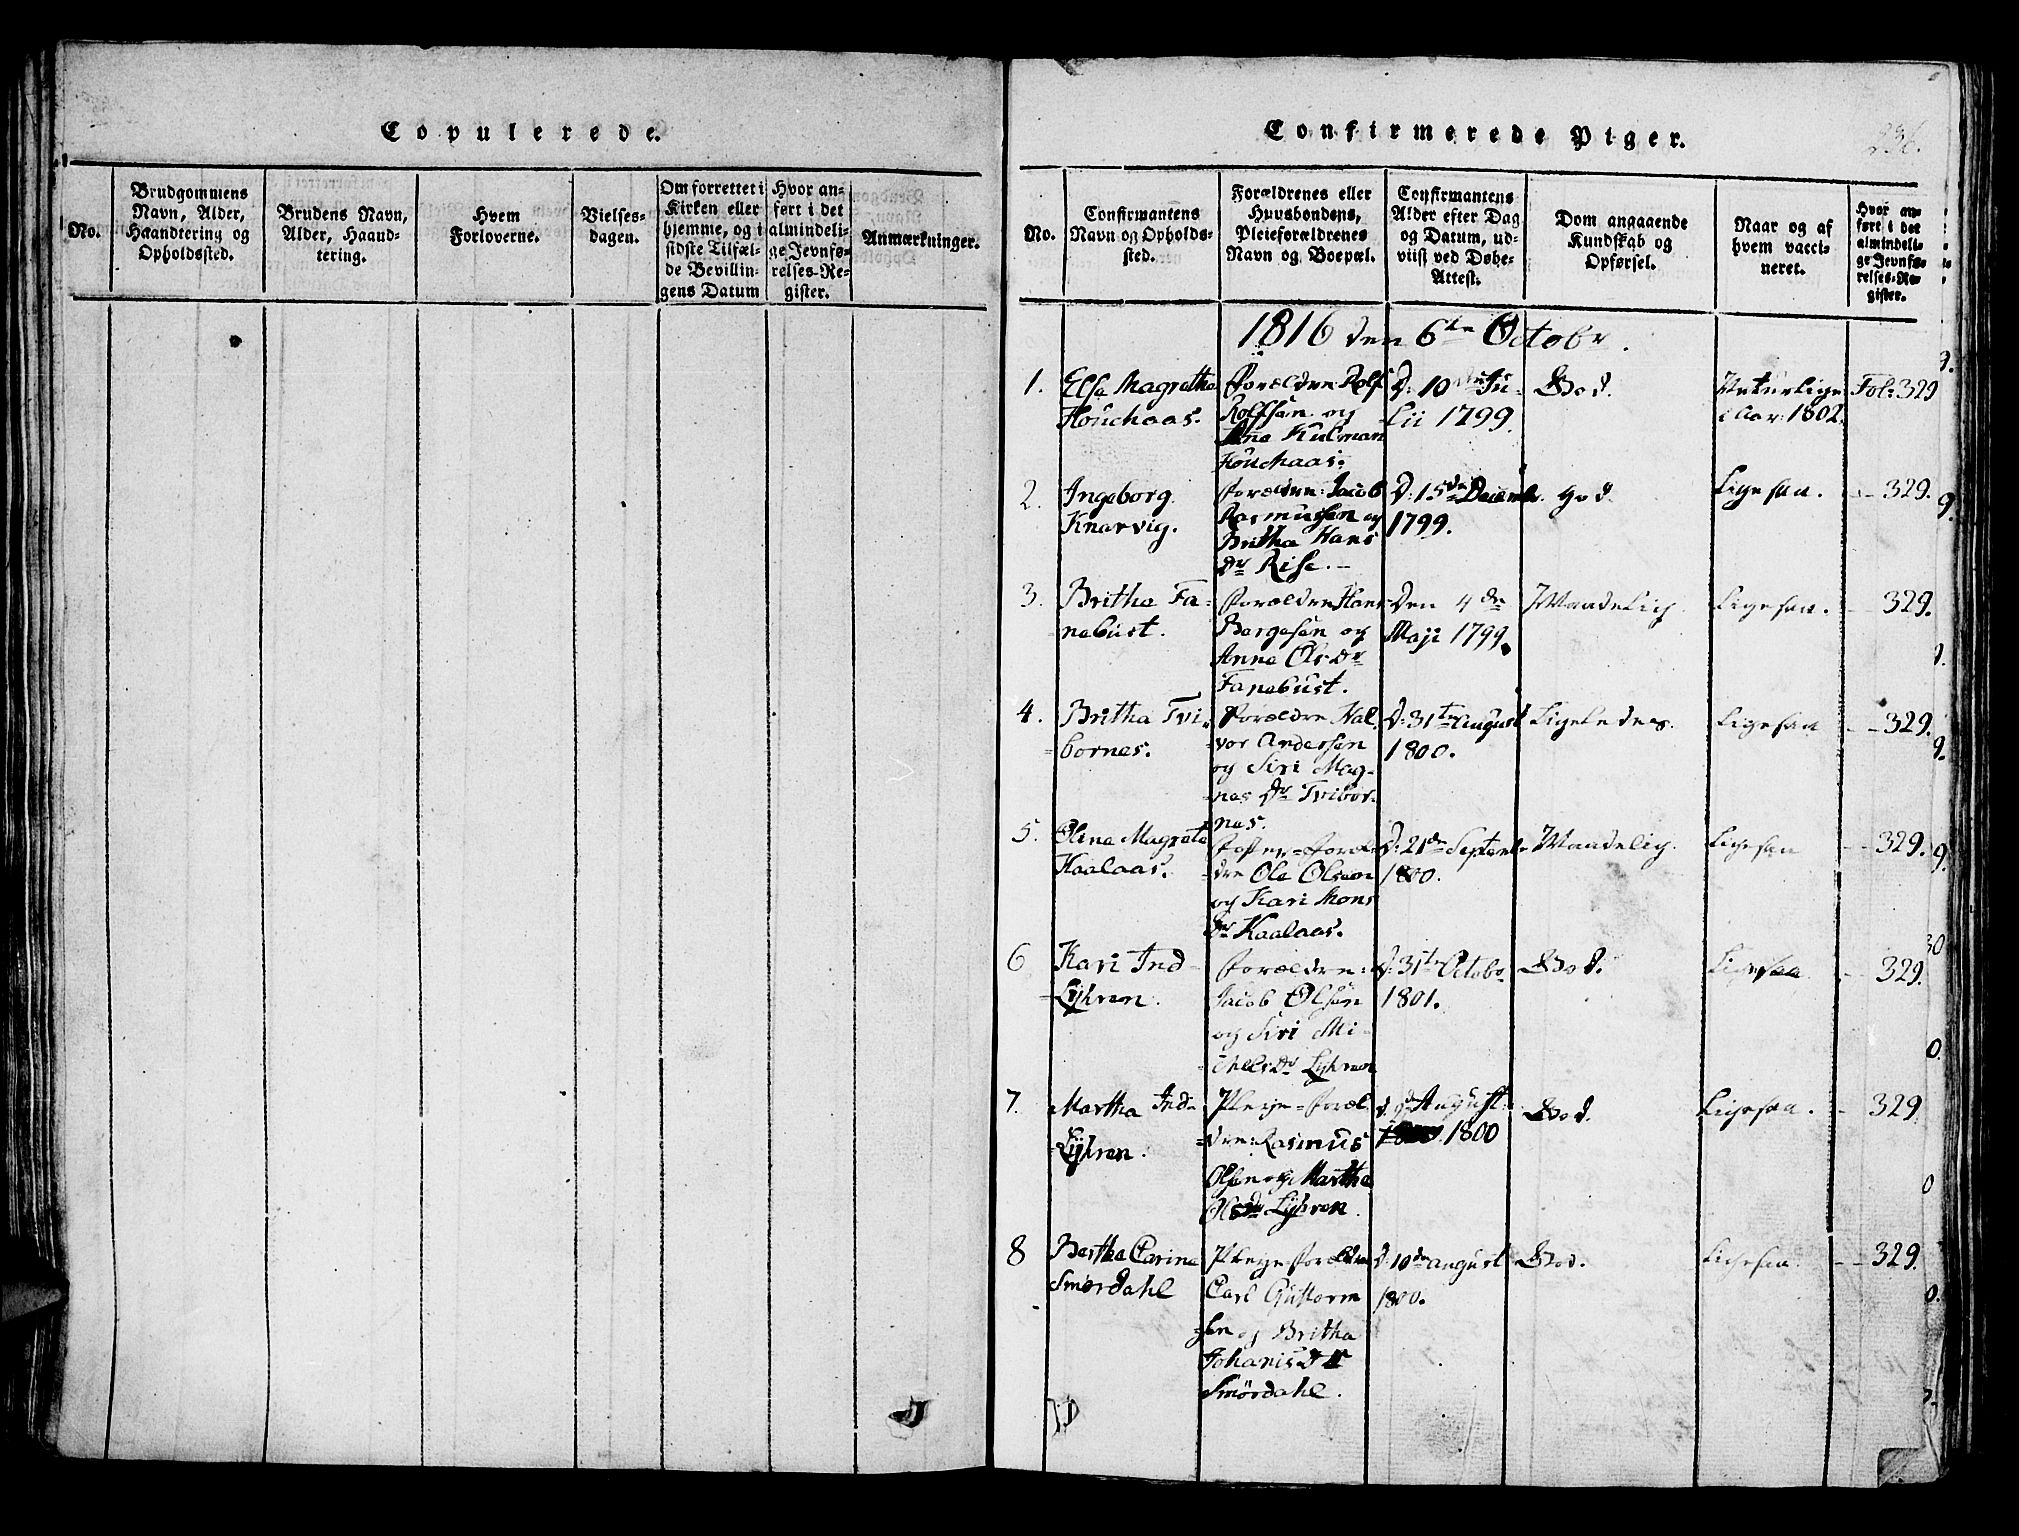 Copulerede.
No.
Brudgommens
Navn, Alder,
Haandtering og
Opholdssted.
Brudens Navn,
Alder, Haand-
tering.
Hvem
Forloverne.
Vielses-
dagen.
Om forrettet i
Kirken eller
hjemme, og i
sidste Tilfæl-
de Bevillin-
gens Datum
Hvor an-
ført i det
almindeli-
ge Jevnfø-
relses-Re-
gister.
Anmærkninger.
Confirmerede Piger.
236.
No.
Confirmantens
Navn og Opholds-
sted.
Forældrenes eller
Huusbondens,
Pleieforældrenes
Navn og Boepæl.
Confirmantens
Alder efter Dag
og Datum, ud-
viist ved Døbe-
Attest.
Dom angaaende
Kundskab og
Opførsel.
Naar og af
hvem vacci-
neret.
Hvor an-
ført i det
almindeli-
ge Jevnfø-
relses-Re-
gister.
1816 den 6te Octobr.
1.
Else Magretha
Houchaas.
Forældre Rolf
Rolfsen og
Anne Kulman
Houchaas.
D: 10de Ju-
lii 1799.
God.
Naturlige
i Aar: 1802.
Fol: 329
2.
Ingeborg
Knarvig.
Forældre: Jacob
Rasmussen og
Britha Hans
Dr Rise.-
D: 15de Decemb.
1799.
God.
Ligesaa.
- 329.
3.
Britha Fa-
nebust.
Forældre Hans
Børgesen og
Anne Ols Dr
Fanebust.
Den 4de
Maji 1799.
Maadelig.
Ligesaa.
- 329.
4.
Britha Tvi-
bornes.
Forældre Hal-
vor Anderssen
og Siri Mag-
nes Dr Tvibor-
nes.
D: 31te August
1800.
Ligeledes.
Ligesaa
- 329.
5.
Oline Magreta
Kaalaas.
Foster=Foræl-
dre Ole Olsen
og Kari Mons
Dr Kaalaas.
D: 21de Septemb.
1800.
Maadelig.
Ligesaa
- 329.
6
Kari Ind-
Lyhren.
Forældre:
Jacob Olsen
og Siri Mi-
chels Dr Lyhren
d: 31te Octobr
1801.
God.
Ligesaa
- 329.
7.
Martha Ind-
Lyhren.
Pleye=Foræl-
dre: Rasmus
Olsen og Martha
Ols Dr Lyhren.
August
1800
God.
Ligesaa.
- 329
8
Bertha Carina
Smørdahl
Pleye-Forældre
Carl Guttorm
sen og Britha
Johanis Dr
Smørdahl.
d: 10de august
1800.
God.
Ligesaa.
- 329.